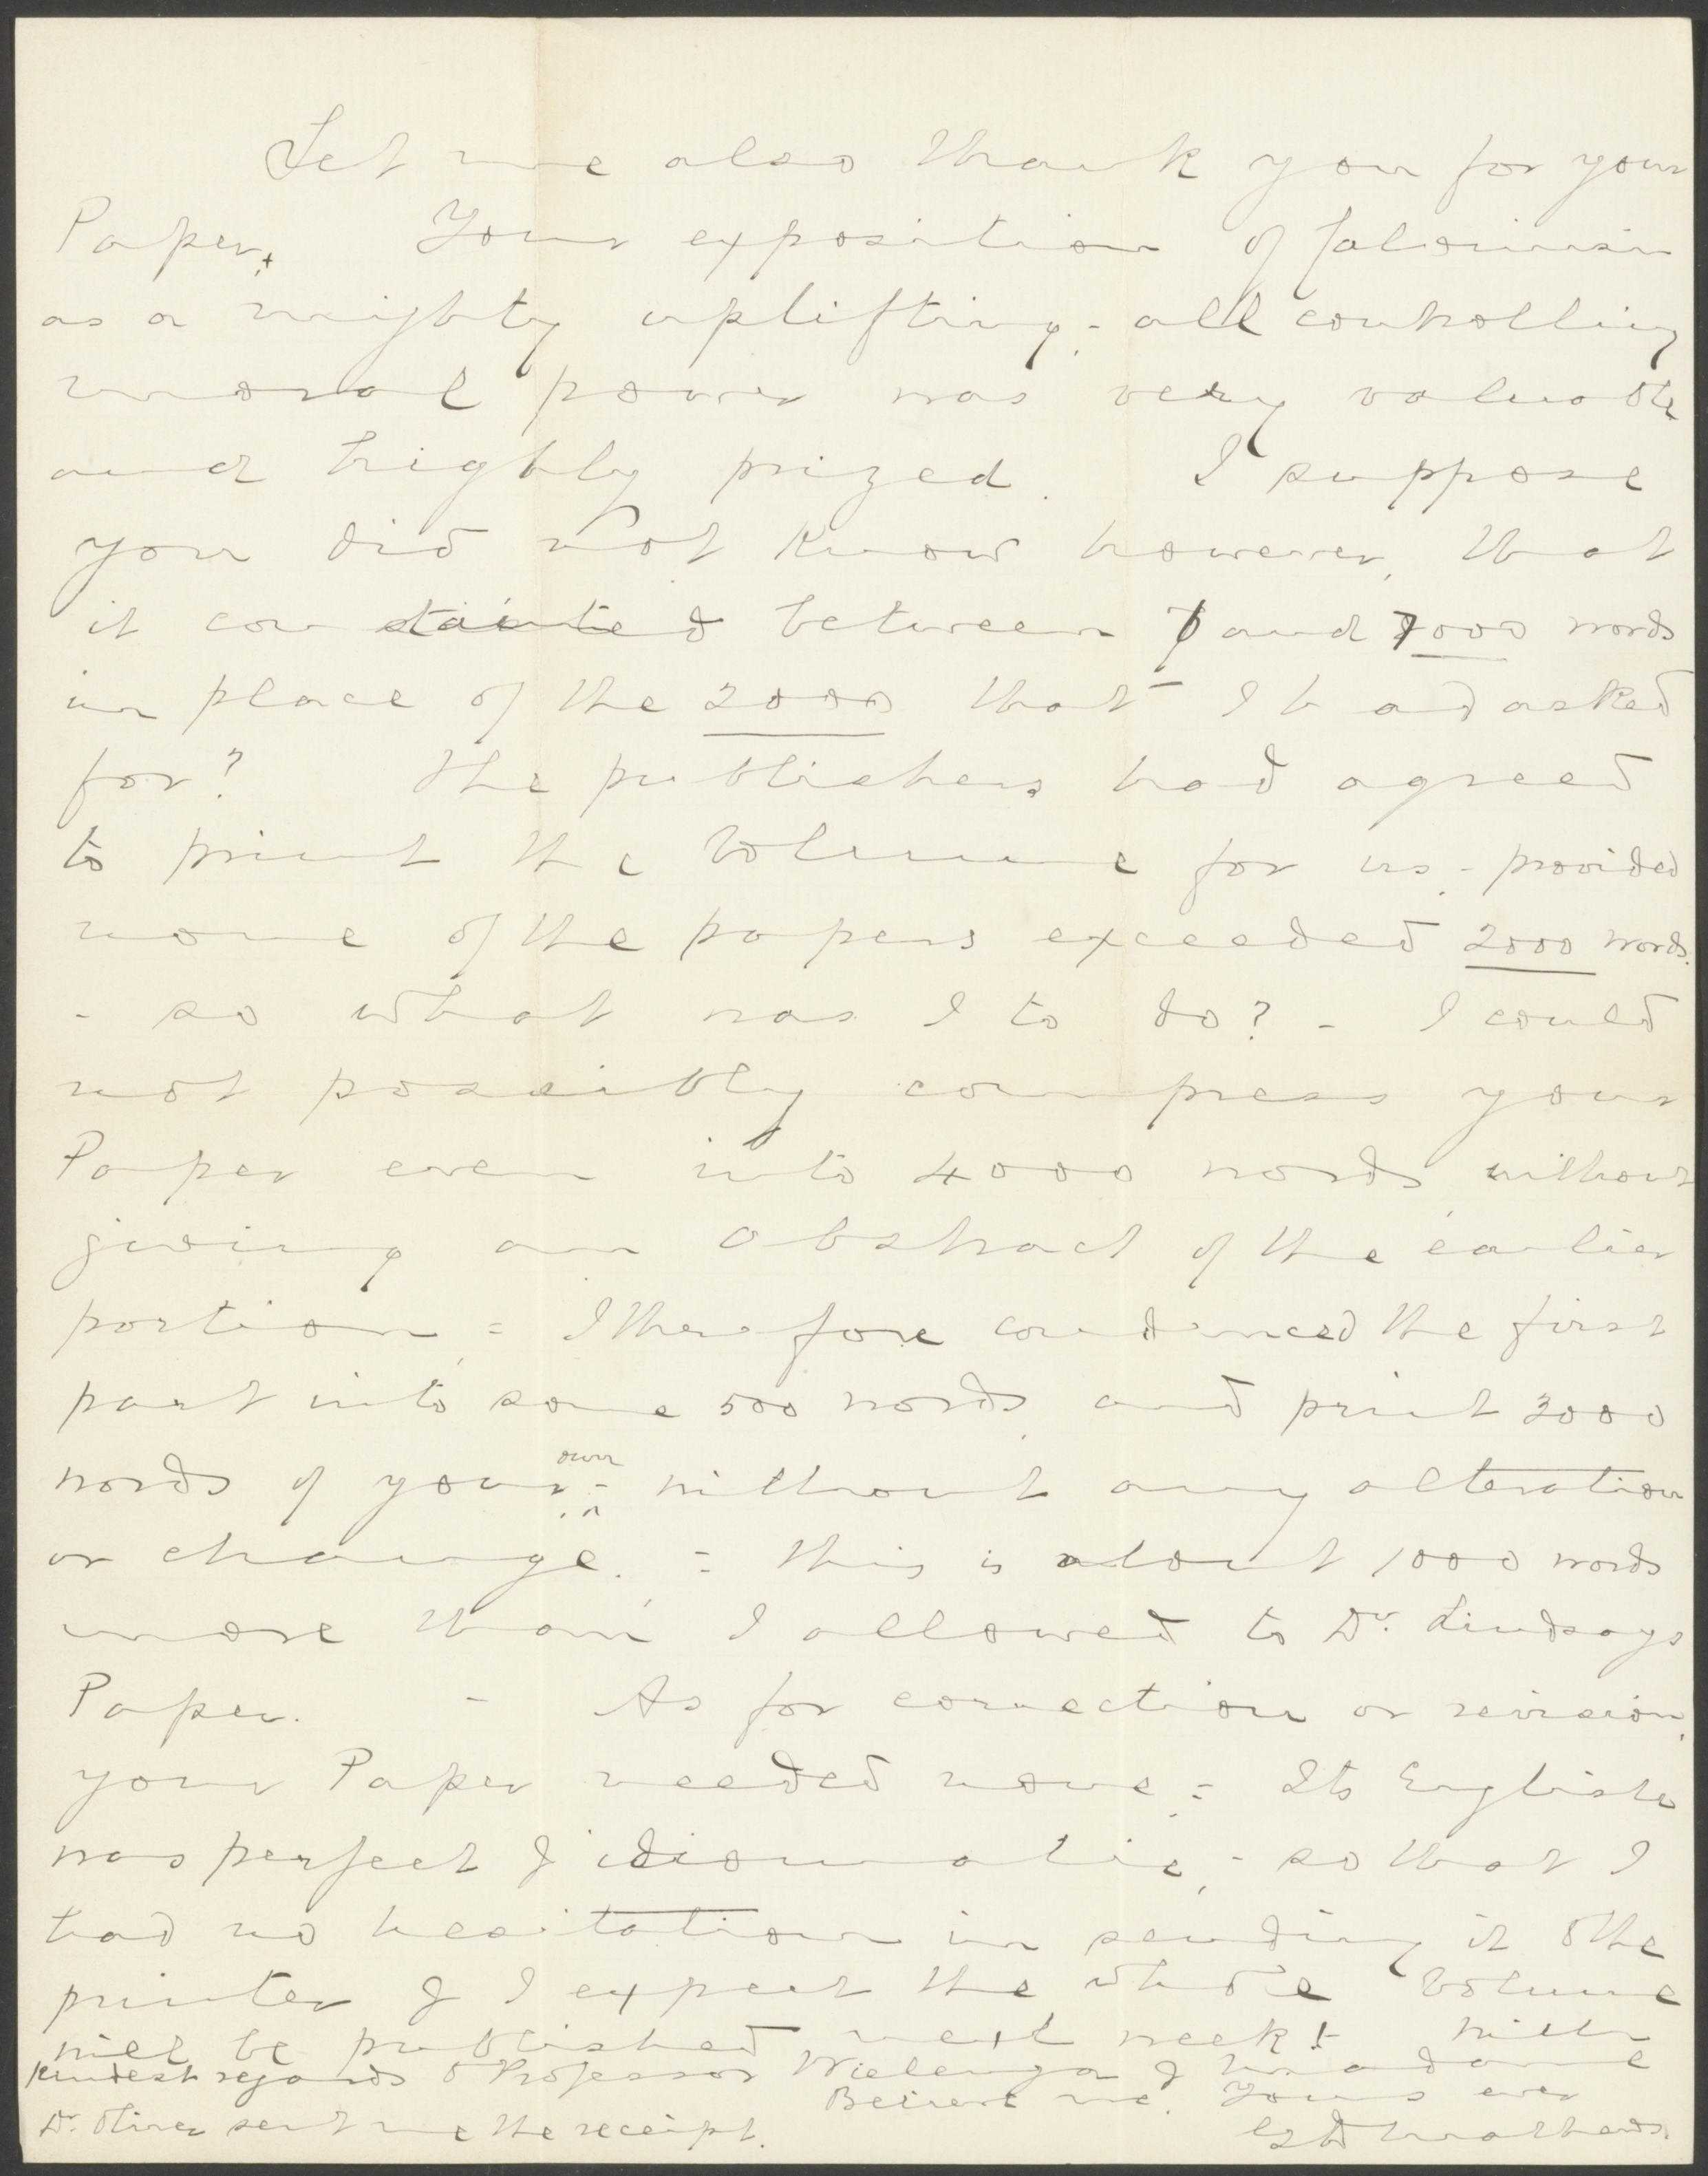 Let me also thank you for your
Paper. Your exposition of Calvinism
as a mighty uplifting - all controlling
moral power was very valuable
and highly prized. I suppose
you did not know however, that
it contained between 6 and 7000 words
in place of the 2000 that I had asked
for? The publishers had agreed
to print the Volume for us, - provided
none of the papers exceeded 2000 words.
- so what was I to do? - I could
not possibly compress your
Paper even into 4000 words without
giving an Abstract of the earlier
portion, = I therefore condensed the first
part into some 500 words, and print 3000
own
words of your - without any alteration
or change. = This is about 1000 words
more than I allowed to Dr. Lindsays
Paper. - As for correction or revision,
your Paper needed none, = Its English
was perfect & idiomatic, - so that I
had no hesitation in sending it to the
printer & I expect the whole Volume
will be published next week! - With
Kindest regards to Professor Wielenga & Madame
Believe me. Yours ever
Dr. Oliver sent me the receipt.
G D Mathews.